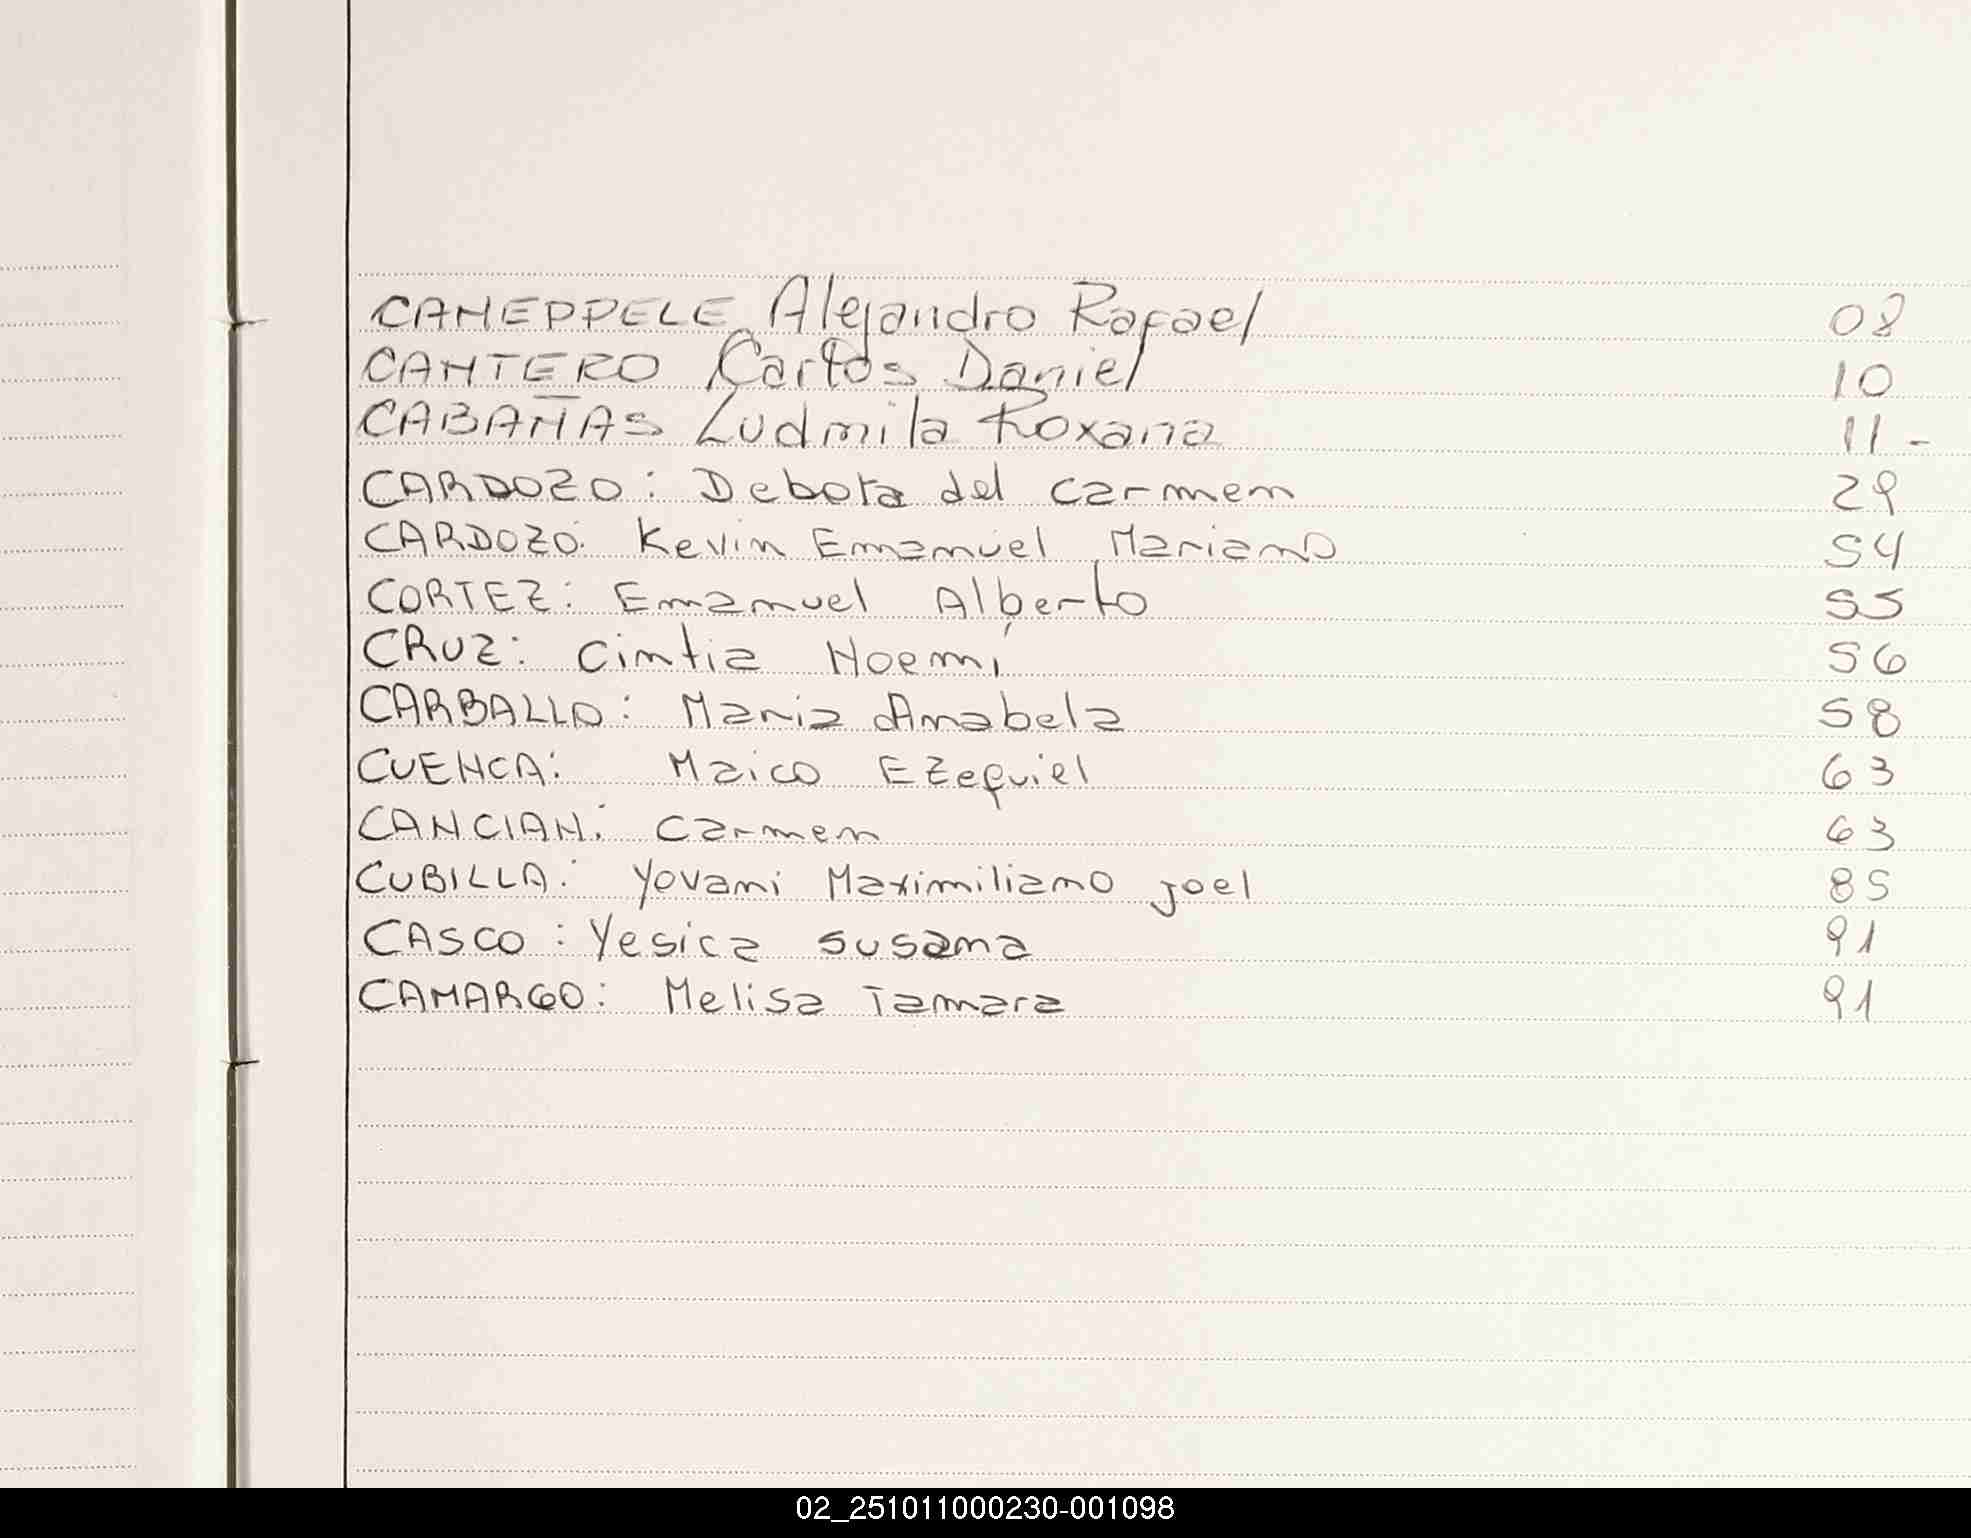 CANEPPELE Alejandro Rafael 08
CANTERO Carlos Daniel 10
CABAÑAS Ludmila Roxana 11 -
CARDOZO: Debora del carmen 29
CARDOZO: Kevin Emanuel Mariano 54
CORTEZ: Emanuel Alberto 55
CRUZ: Cintia Noemí 56
CARBALLO: Maria Anabela 58
CUENCA: Maico EZequiel 63
CANCIAN: Carmen 63
CUBILLA: Yovani Maximiliano joel 85
CASCO: Yesica susana 91
CAMARGO: Melisa Tamara 91
02_251011000230-001098